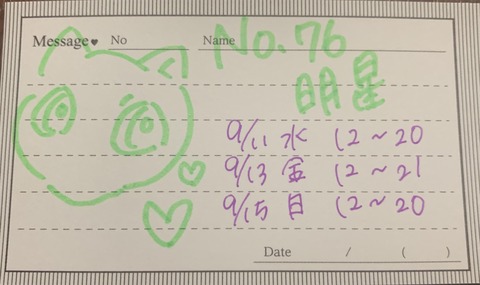 Message♥ No Name No.76
明星
9/11 水 12~20
9/13 金 12~21
9/15 日 12~20
Date / ( )